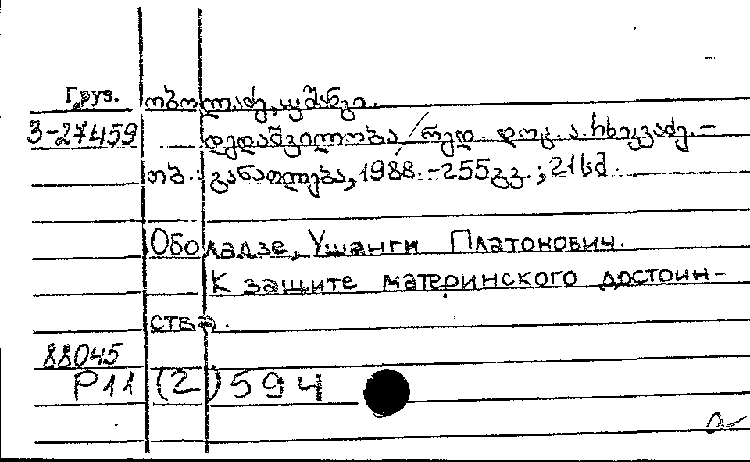 Груз. ობოლაძე, უშანგი.
3-27459 დედაშვილობა / რედ. დოც. ა. სხუკვაძე. –
თბ. : განათლება, 1988. - 255გვ. ; 21სმ.
Оболадзе, Ушанги Платонович.
К защите материнского достоин-
ства.
88045
Р11(2)594